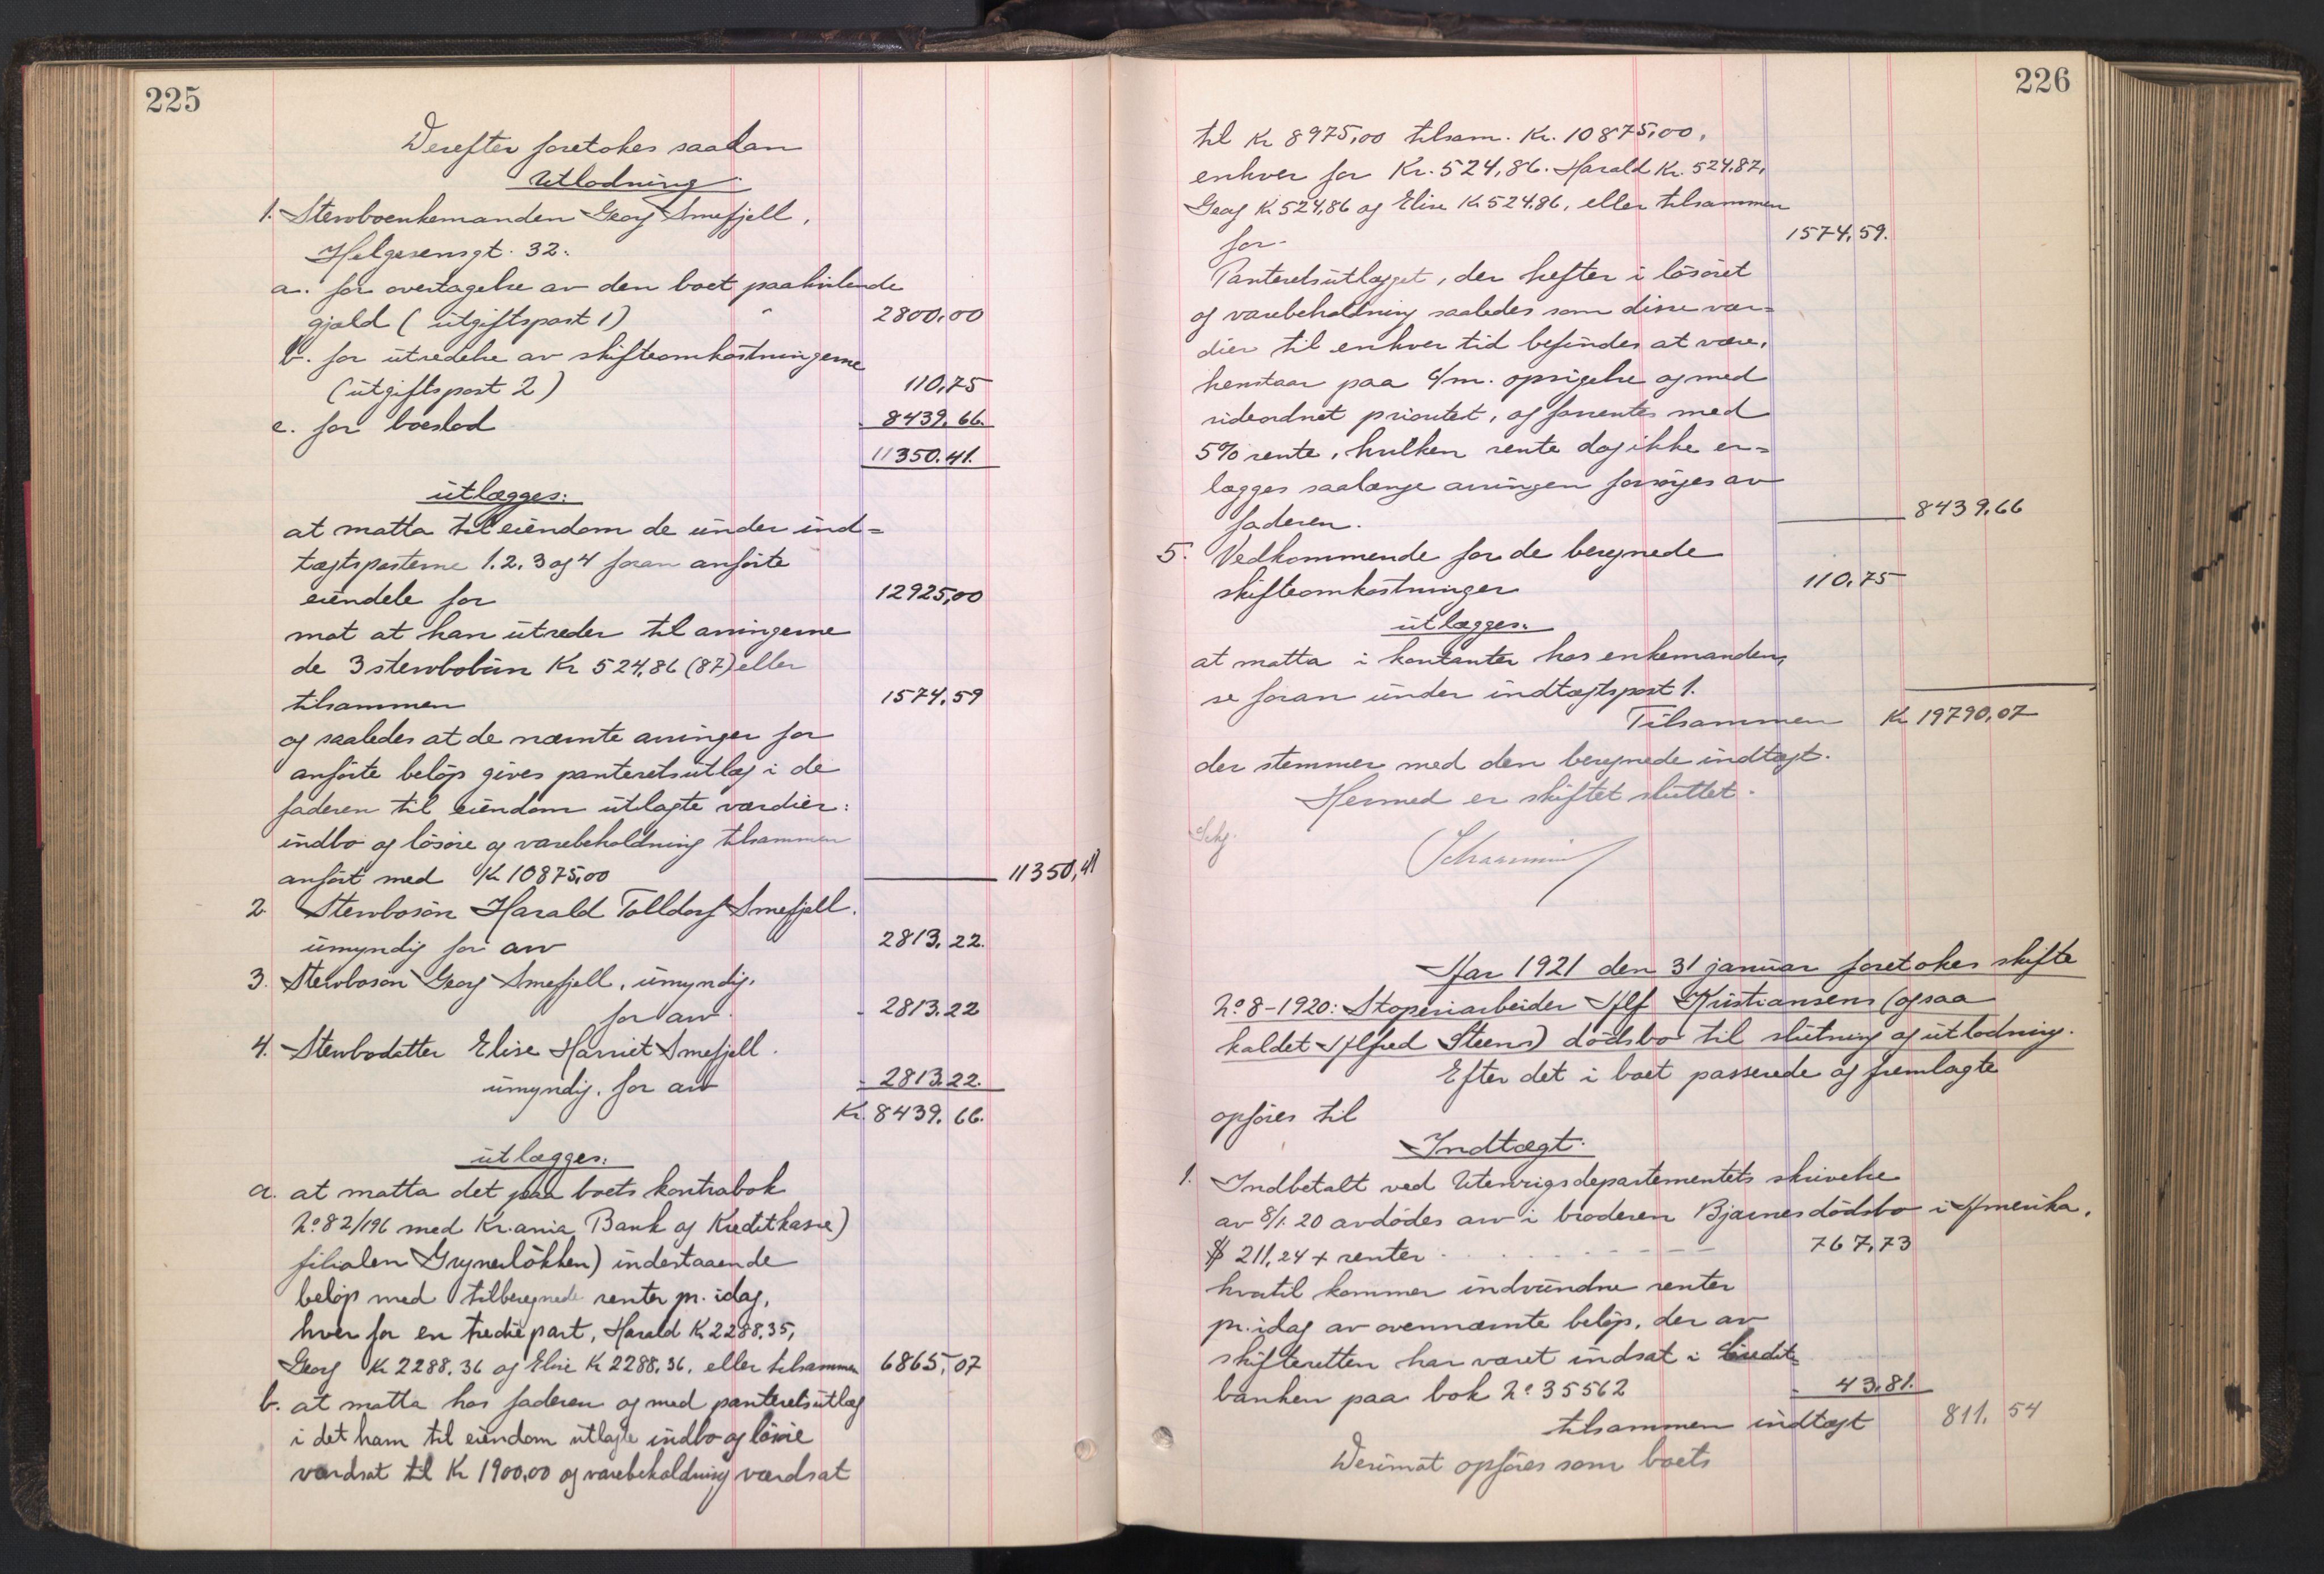 225
Derefter foretokes saadan
Utlodning.
1. Stervboenkemanden Georg Smefjell,
Helgesensgt. 32:
a. for overtagelse av den boet paahvilende
gjæld (utgiftspost 1) " 2800,00
b. for utredelse av skifteomkostningerne
(utgiftspost 2) 110,75
c. for boeslod 8439.66.
11350.41.
utlægges:
at motta til eiendom de under ind=
tægtsposterne 1.2.3 og 4 foran anførte
eiendele for 12925,00
mot at han utreder til arvingerne
de 3 stervbobørn Kr 524,86 (87) eller
tilsammen 1574,59
og saaledes at de nævnte arvinger for
anførte beløp gives panteretsutlæg i de
faderen til eiendom utlagte værdier:
indbo og løsøre og varebeholdning tilsammen
anført med Kr 10875,00 11350,41
2. Stervbosøn Harald Tolldorf Smefjell.
umyndig for arv 2813.22.
3. Stervbosøn Georg Smefjell, umyndig,
for arv. - 2813.22
4. Stervbodatter Elise Harriet Smefjell.
umyndig, for arv - 2813.22.
Kr. 8439.66.
utlægges:
a. at motta det paa boets kontrabok
No 82/196 med Kr.ania Bank og Kreditkasse)
filialen Grünerløkken) indestaaende
beløp med tilberegnede renter pr. idag,
hver for en tredie part, Harald Kr 2288,35,
Georg Kr 2288.36 og Elise Kr 2288.36. eller tilsammen 6865,07
b. at motta hos faderen og med panteretsutlæg
i det ham til eiendom utlagte indbo og løsøre
værdsat til Kr 1900,00 og varebeholdning værdsat
226
til Kr 8975,00 tilsam. Kr. 10875,00,
enhver for Kr. 524,86. Harald Kr. 524.87,
Georg Kr 524,86 og Elise Kr 524.86, eller tilsammen
for. 1574,59.
Panteretsutlægget, der hefter i løsøret
og varebeholdning saaledes som disse vær=
dier til enhver tid befindes at være,
henstaar paa 6/m. opsigelse og med
sideordnet prioritet, og forrentes med
5% rente, hvilken rente dog ikke er=
lægges saalænge arvingen forsørges av
faderen. 8439,66
5. Vedkommende for de beregnede
skifteomkostninger 110,75
utlægges:
at motta i kontanter hos enkemanden,
se foran under indtægtspost 1.
Tilsammen Kr 19790,07
der stemmer med den beregnede indtægt.
Hermed er skiftet sluttet.
Aar 1921 den 31 januar foretokes skifte
No 8-1920: Støperiarbeider Alf Kristiansens (ogsaa
kaldet Alfred Steens) dødsbo til slutning og utlodning.
Efter det i boet passerede og fremlagte
opføres til
Indtægt.
1. Indbetalt ved Utenrigsdepartementets skrivelse
av 8/1. 20 avdødes arv i broderen Bjarnes dødsbo i Amerika,
$ 211,24 + renter 767,73
hvortil kommer indvundne renter
pr. idag av ovennævnte beløp, der av
skifteretten har været indsat i Credit-
banken paa bok No 35562 - 43,81.
tilsammen indtægt 811,54
Derimot opføres som boets